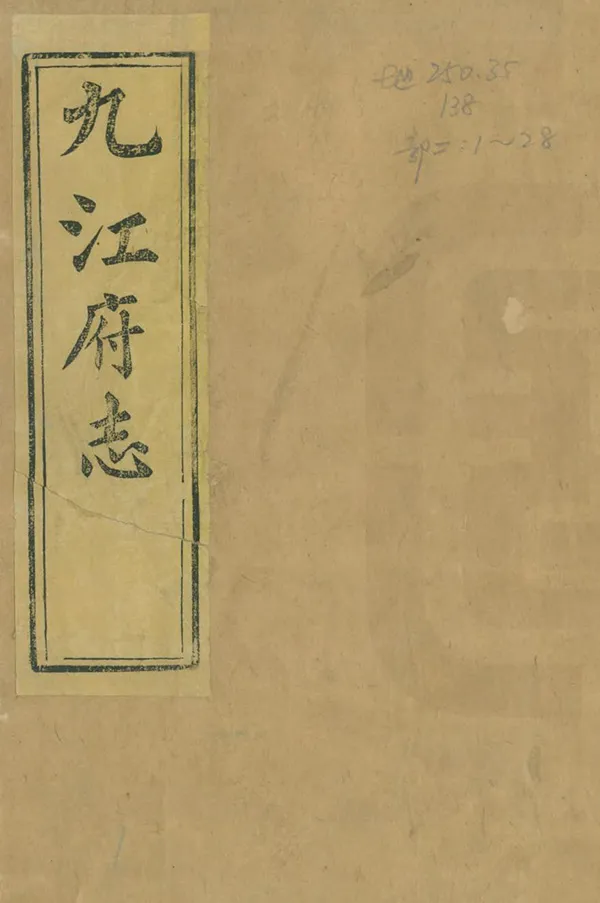 九江府志
地 250.35
138
部二:1~28